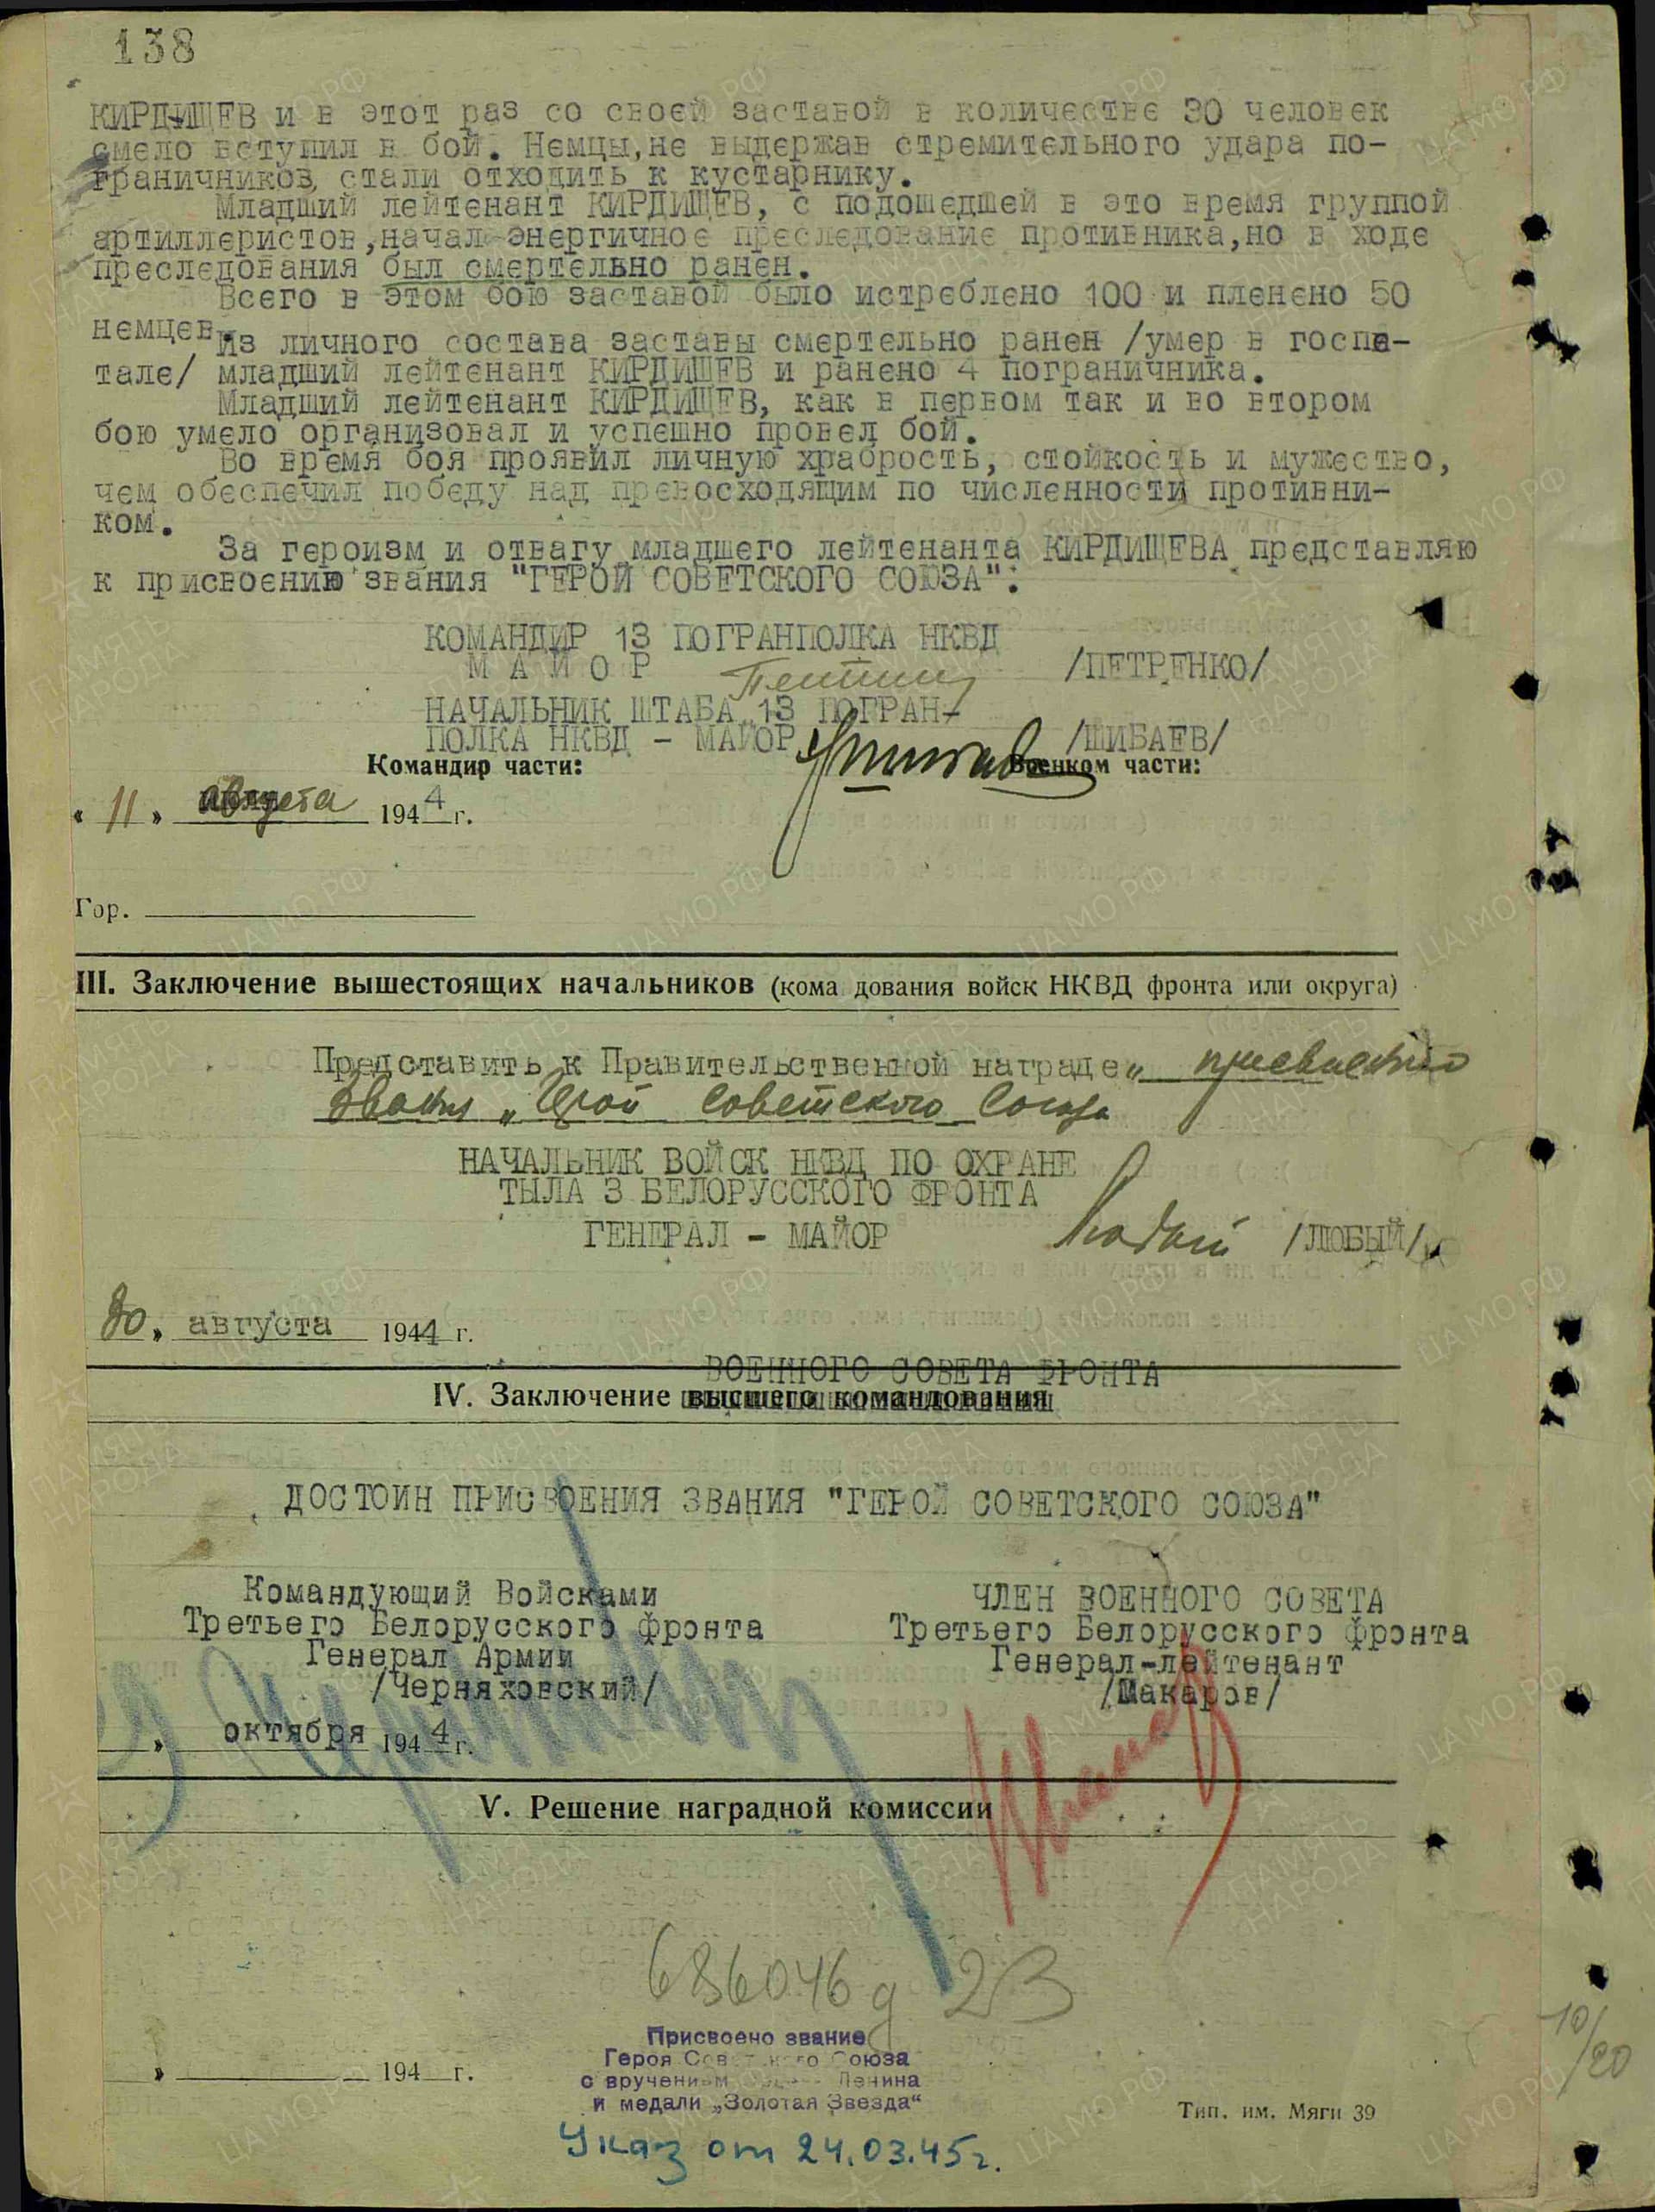 138
КИРДИЩЕВ и в этот раз со своей заставой в количестве 30 человек
смело вступил в бой. Немцы,не выдержав стремительного удара по-
граничников, стали отходить к кустарнику.
Младший лейтенант КИРДИЩЕВ, с подошедшей в это время группой
артиллеристов,начал энергичное преследование противника,но в ходе
преследования был смертельно ранен.
Всего в этом бою заставой было истреблено 100 и пленено 50
немцев.
Из личного состава заставы смертельно ранен /умер в госпи-
тале/ младший лейтенант КИРДИЩЕВ и ранено 4 пограничника.
Младший лейтенант КИРДИЩЕВ, как в первом так и во втором
бою умело организовал и успешно провел бой.
Во время боя проявил личную храбрость, стойкость и мужество,
чем обеспечил победу над превосходящим по численности противни-
ком.
За героизм и отвагу младшего лейтенанта КИРДИЩЕВА представляю
к присвоению звания "ГЕРОЙ СОВЕТСКОГО СОЮЗА".
КОМАНДИР 13 ПОГРАНПОЛКА НКВД
М А Й О Р /ПЕТРЕНКО/
НАЧАЛЬНИК ШТАБА 13 ПОГРАН-
ПОЛКА НКВД - МАЙОР /ШИБАЕВ/
Командир части: Военком части:
« 11 » августа 1944 г.
Гор.
III. Заключение вышестоящих начальников (кома дования войск НКВД фронта или округа)
Представить к Правительственной награде „ присвоению
звания „Герой Советского Союза
НАЧАЛЬНИК ВОЙСК НКВД ПО ОХРАНЕ
ТЫЛА 3 БЕЛОРУССКОГО ФРОНТА
ГЕНЕРАЛ - МАЙОР Любый /ЛЮБЫЙ/
30 » августа 1944 г.
ВОЕННОГО СОВЕТА ФРОНТА
IV. Заключение высшего командования
ДОСТОИН ПРИСВОЕНИЯ ЗВАНИЯ "ГЕРОЙ СОВЕТСКОГО СОЮЗА"
Командующий Войсками
Третьего Белорусского фронта
Генерал Армии
/Черняховский/
ЧЛЕН ВОЕННОГО СОВЕТА
Третьего Белорусского фронта
Генерал-лейтенант
/Макаров/
» октября 1944 г.
V. Решение наградной комиссии
686046 д 23
Присвоено звание
Героя Советского Союза
с вручением Ленина
и медали „Золотая Звезда“
» 194 г.
Тип. им. Мяги 39
10/20
Указ от 24.03.45г.